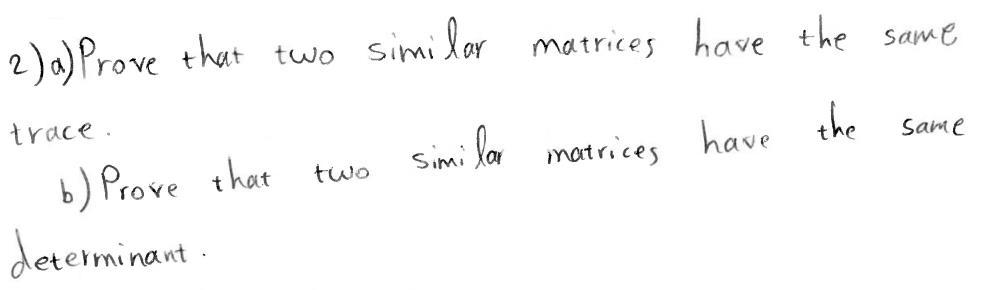 2)a)Prove that two similar matrices have the same
trace.
b) Prove that two similar matrices have the same
determinant.